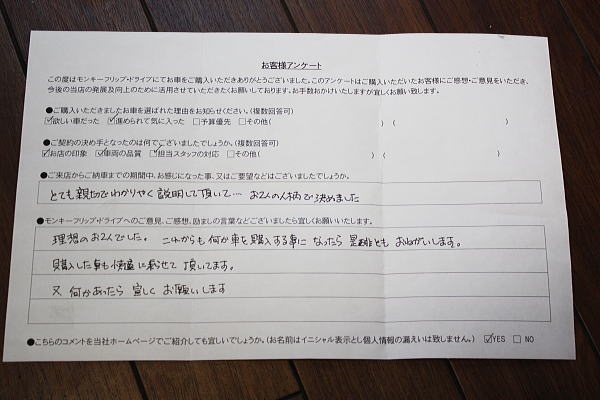 お客様アンケート
この度はモンキーフリップ・ドライブにてお車をご購入いただきありがとうございました。このアンケートはご購入いただいたお客様にご感想・ご意見をいただき、
今後の当店の発展及向上のために活用させていただきたくお願いしております。お手数おかけいたしますが宜しくお願い致します。
●ご購入いただきましたお車を選ばれた理由をお知らせください。(複数回答可)
☑欲しい車だった ☑進められて気に入った □予算優先 □その他( )( )
●ご契約の決め手となったのは何でございましたでしょうか。(複数回答可)
☑お店の印象 ☑車両の品質 ☑担当スタッフの対応 □その他( )( )
●ご来店からご納車までの期間中、お感じになった事、又はご要望などはございましたでしょうか。
とても親切でわかりやく説明して頂いて… お2人の人柄で決めました
●モンキーフリップ・ドライブへのご意見、ご感想、励ましの言葉などございましたら宜しくお願いいたします。
理想のお2人でした。これからも何か車を購入する事になったら是非ともおねがいします。
購入した車も快適に乗らせて頂いてます。
又何かあったら宜しくお願いします
●こちらのコメントを当社ホームページでご紹介しても宜しいでしょうか。(お名前はイニシャル表示とし個人情報の漏えいは致しません。) ☑YES □NO